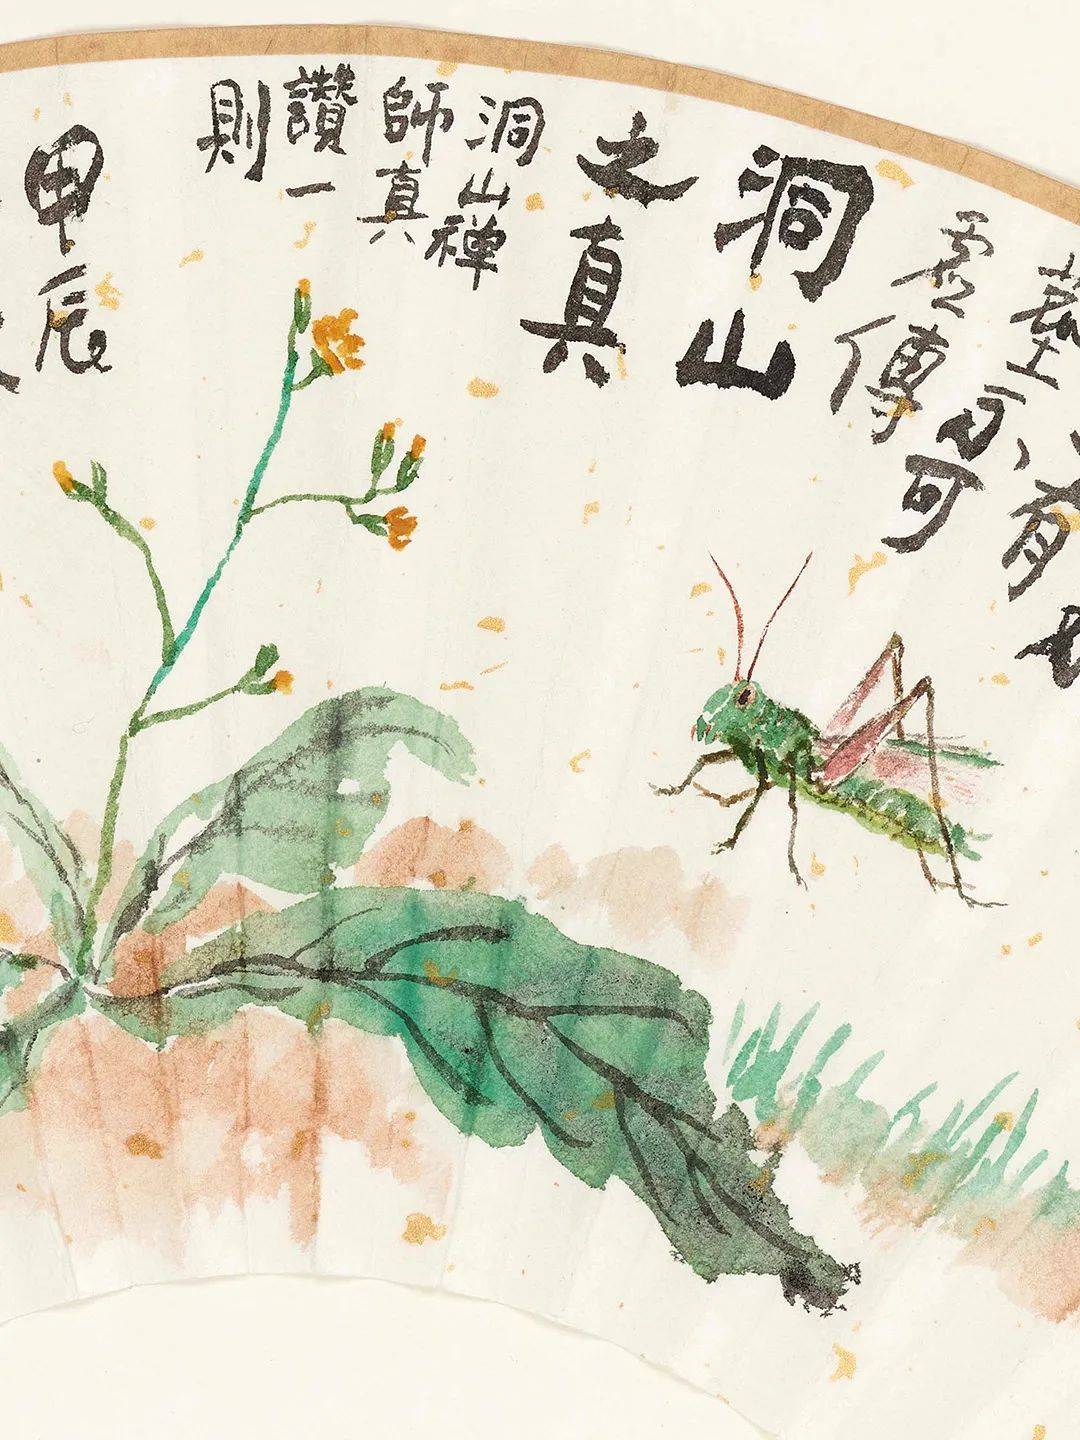 有
不可
虛傳
洞山
之真
洞山禅
師真
讚一
則
甲辰